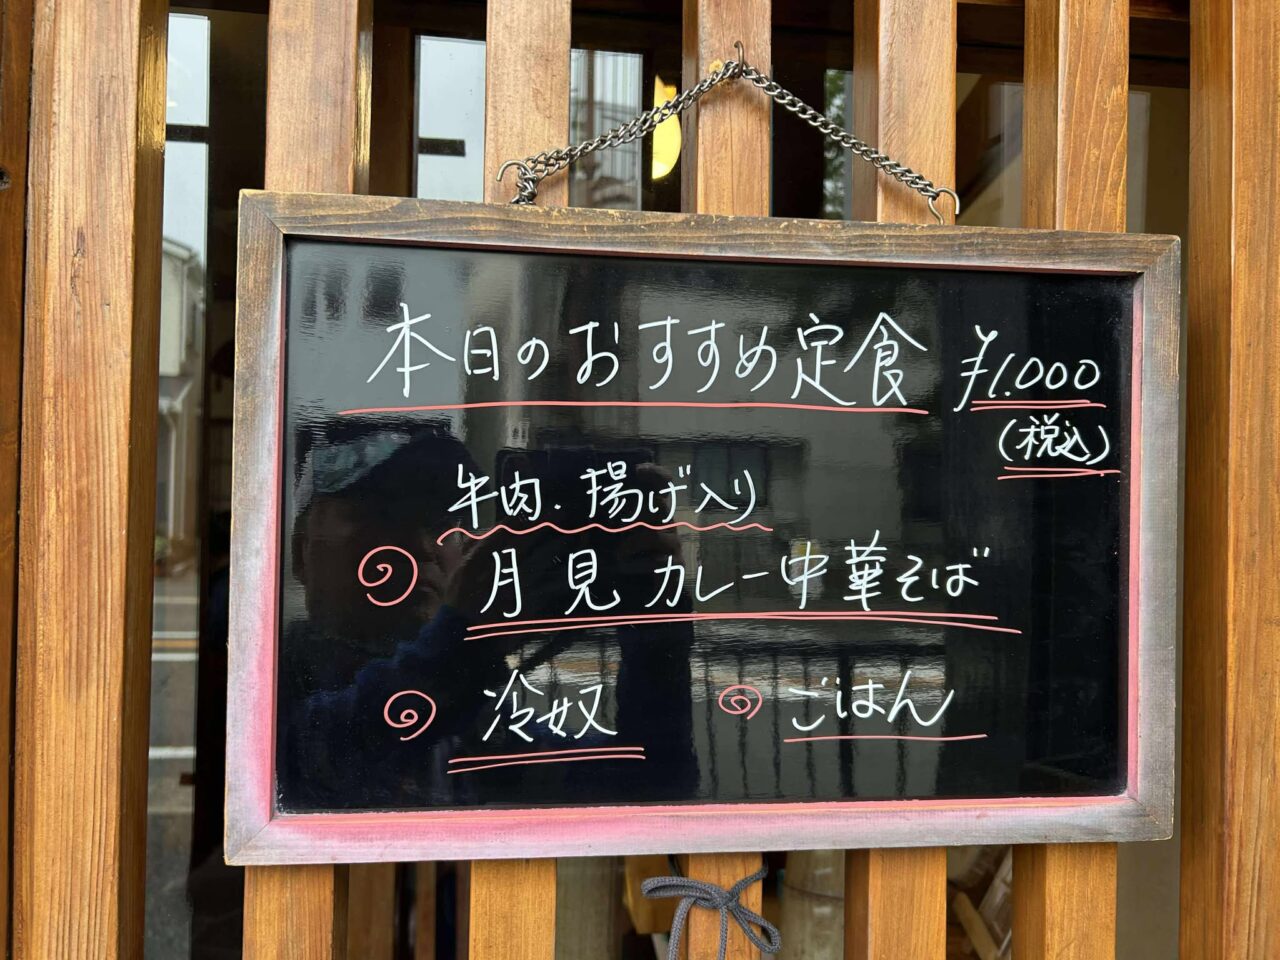 本日のおすすめ定食 ¥1.000
(税込)
牛肉.揚げ入り
月見カレー中華そば
冷奴 ごはん